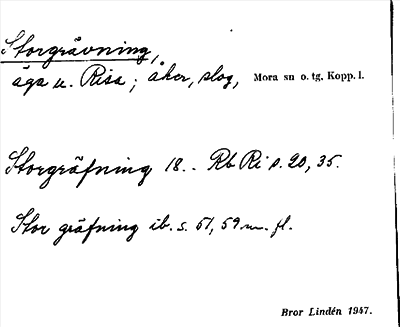 Storgrävning,
äga u. Risa; åker, slog, Mora sn o. tg, Kopp. l.
Storgräfning 18.. Rb Ri s. 20, 35.
Stor gräfning ib. s. 51, 59 m. fl.
Bror Lindén 1947.